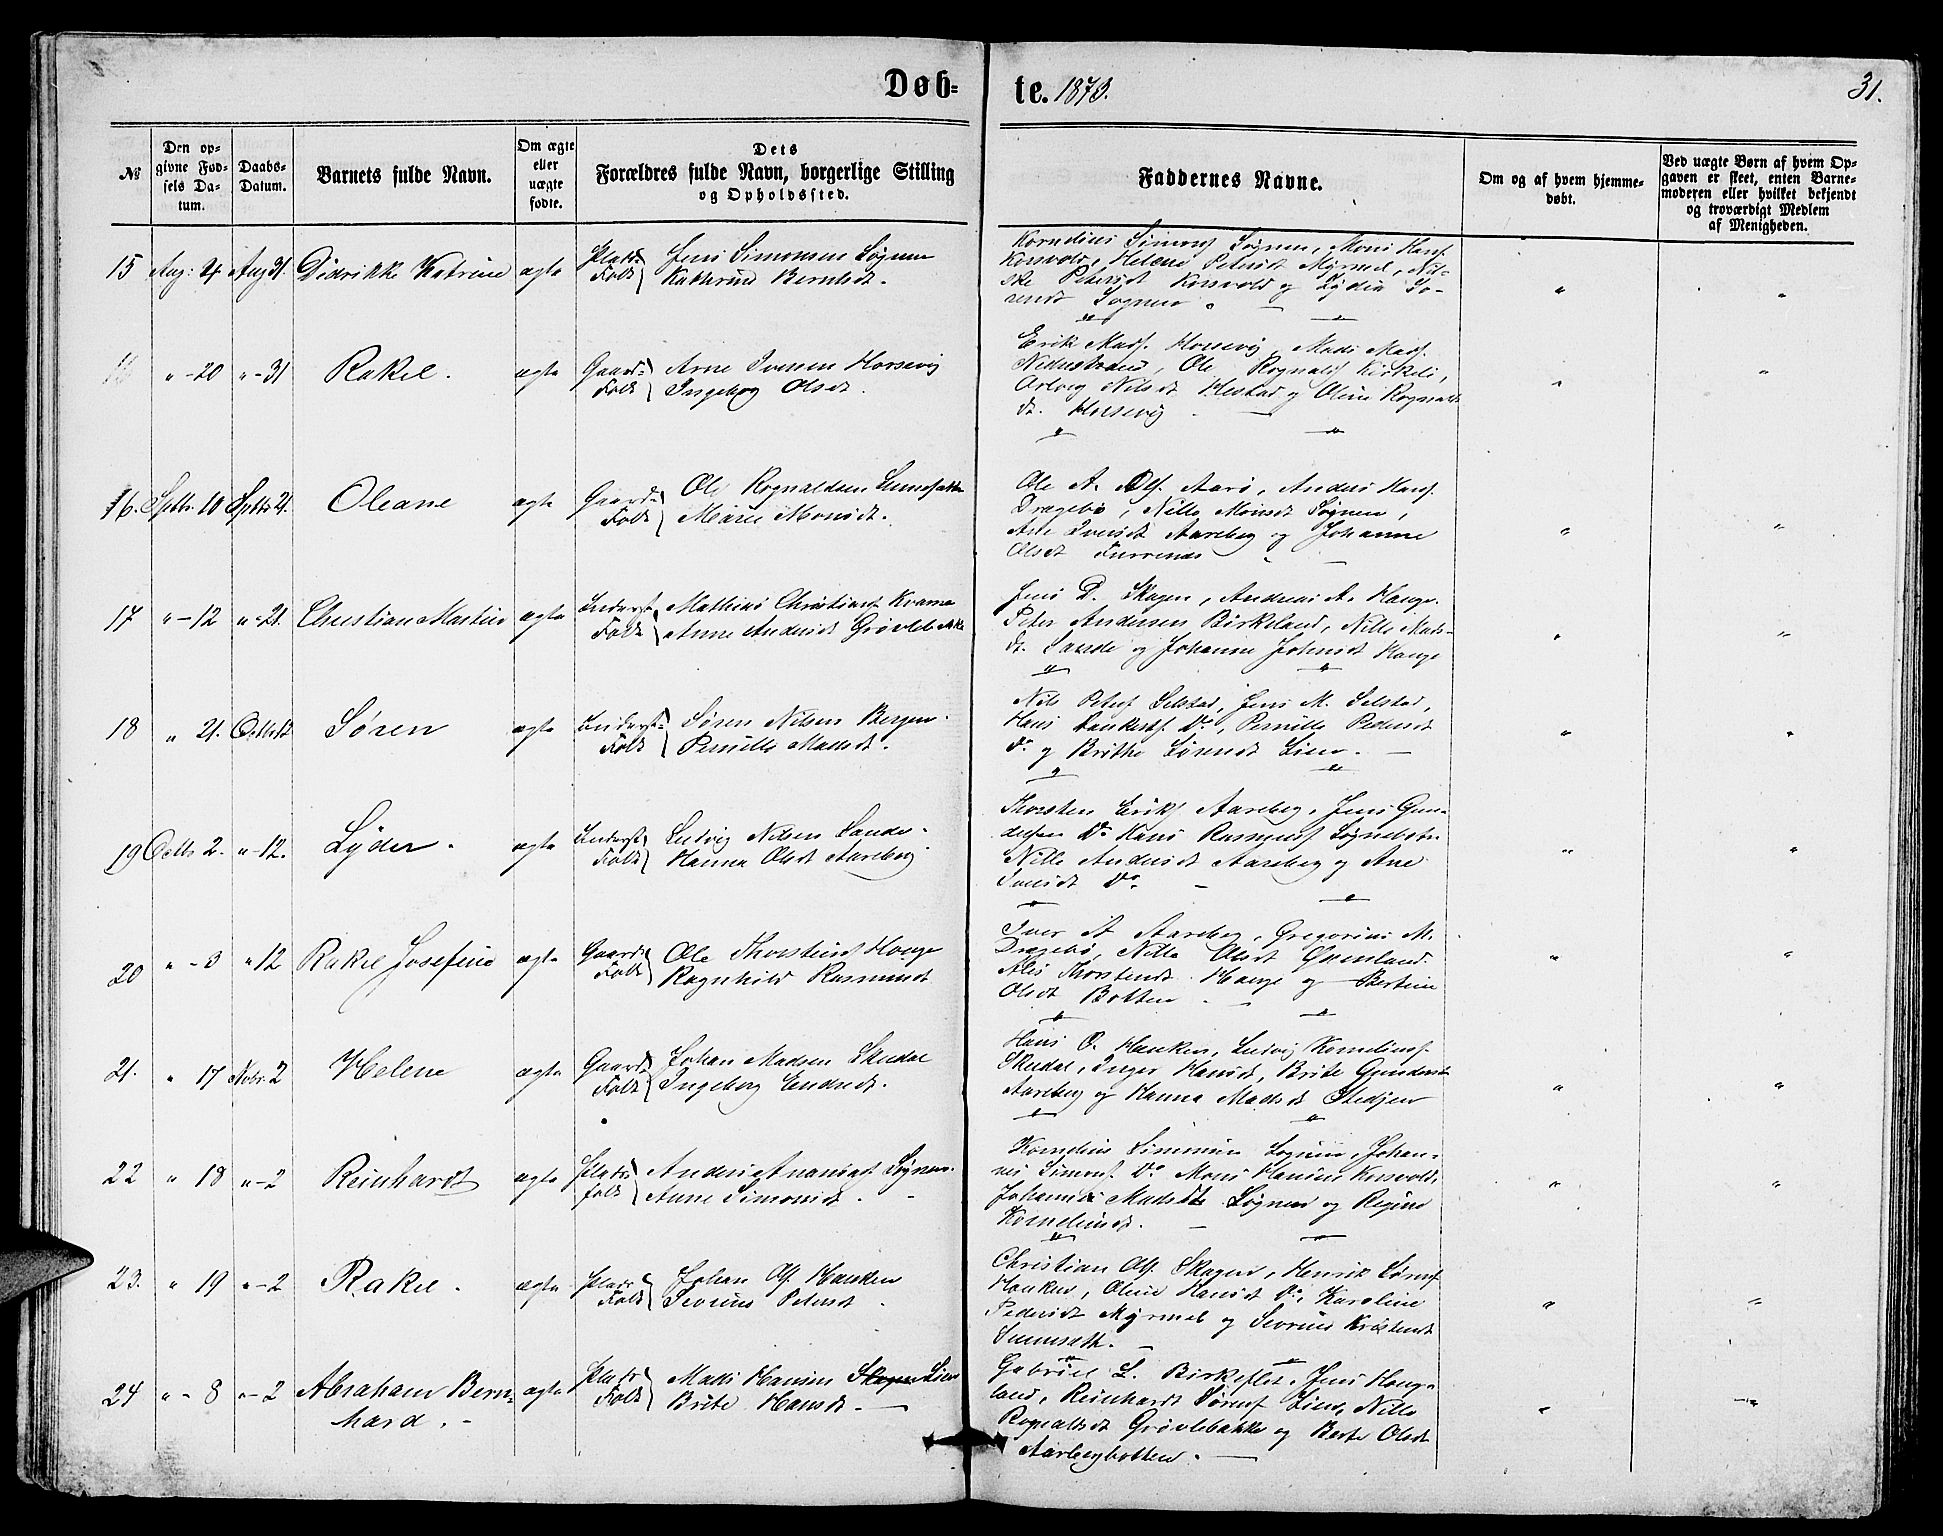 Døb=
te. 1873.
31.
№
Den op=
givne Fød=
sels Da=
tum.
Daabs=
Datum.
Barnets fulde Navn.
Om ægte
eller
uægte
fødte.
Dets
Forældres fulde Navn, borgerlige Stilling
og Opholdssted.
Faddernes Navne.
Om og af hvem hjemme=
døbt.
Ved uægte Børn af hvem Op=
gaven er skeet, enten Barne=
moderen eller hvilket bekjendt
og troværdigt Medlem
af Menigheden.
15 Aug: 4 Aug 31 Didrikke Katrine ægte Plads Folk Jens Simonsen Søgnen
Katharine Berntsdt.
Kornelius Simons. Søgnen, Mons Hans.
Korsvold, Helene Petersdt Myrmel, Nil-
ske Petersdt Korsvold og Lydia So-
rensdt Søgnen
" -20 " -31 Rakel. ægte Gaard= Folk Arne Iversen Horsevig
Ingeborg Olsdt.
Erik Mads. Horsevig, Mads Mads.
Nidrestrand, Ole Rognalds. Kirkeli,
Nilsdt Hestad og Oline Rognalds
dt. Horsevig
16. Septbr. 10 Septbr 21. Oleane ægte Gaard= Folk Ole Rognaldsen
Marie Monsdt.
Ole A. Ols. Aarø, Anders Hans.
Dragebø, Nille Monsdt Søgnen,
Ane Iversdt Aareberg og Johanne
Olsdt Furrenes
17 " -12 " -21. Christian Martin ægte Inderst Folk Mathias Christians. Kvame
Anne Andersdt Grøvlebakke
Jens D. Skagen, Andreas A. Hauge.
Peter Andersen Birkeland, Nille Mads-
dt. Sande og Johanne Johnsdt Hauge
18 " 21. Søren ægte Inderst= Folk Søren Nilsen Bergen.
Pernille Madsdt.
Nils Peters. Selstad, Jens M. Selstad,
Hans Do, Pernille Pedersdt
Do og Brithe Sørensdt Lien.
19 Octbr 2. " -12. Lyder. ægte Inderst Folk Ludvig Nilsen Sande.
Hanna Olsdt Aareberg.
Thorsten Eriks. Aareberg, Jens Gun-
dersen Do Hans Rasmus.
Nille Andersdt Aareberg og Ane
Iversdt Do.
20 " -3 " 12 Rakel Josefine ægte Gaard= Folk Ole Thorstens. Hauge
Ragnhild Rasmusdt
Iver A Aareberg, Gregorius M.
Dragebø, Nille Olsdt Grønland.
Alis Thorstensdt Hauge og Bertine
Olsdt Botten
21. " 17 Novbr. 2 Helene ægte Gaard= Folk Johan Madsen Skudal
Ingeborg Endresdt.
Hans O. Hauken, Ludvig Kornelius.
Skudal, Inger Hansdt, Brite Gundersdt
Aareberg og Hanna Madsdt Stedjen
22 " 18 " -2 Reinhardt ægte Plads= folk Anders Ananias. Søgnen.
Anne Simonsdt.
Kornelius Simonsen Søgnen, Johan-
nes Simons. Do Mons Hansen Korsvold,
Johanne Madsdt Søgnen og Regine
Korneliusdt.
23. " 19 " -2 Rakel. ægte Plads= Folk Johan Ols. Hauken
Severine Petersdt.
Christian Ols. Skagen, Henrik Sørens.
Hauken, Oline Hansdt Do, Karoline
Pedersdt Myrmel og Severine Kristensdt
24 " - 8 " -2 Abraham Bern=
hard. ægte Plads= Folk Mads Hansen Skagen Lien
Brite Hansdt.
Gabriel L. Birkeflet, Jens Haug-
land, Reinhardt Sørens. Lien, Nille
Rognaldsdt Grøvlebakke og Berte Olsdt
Aarbergbotten.